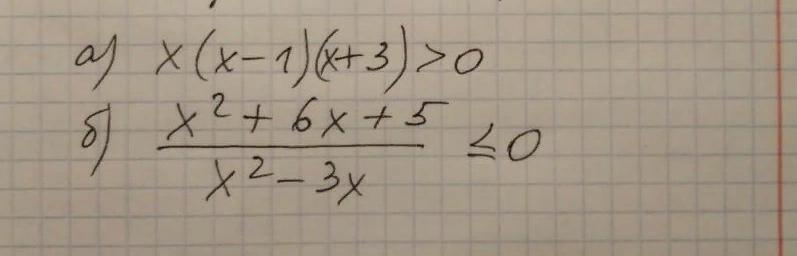 а) x(x-1)(x+3)>0
б) x²+6x+5
x²-3x ≤0